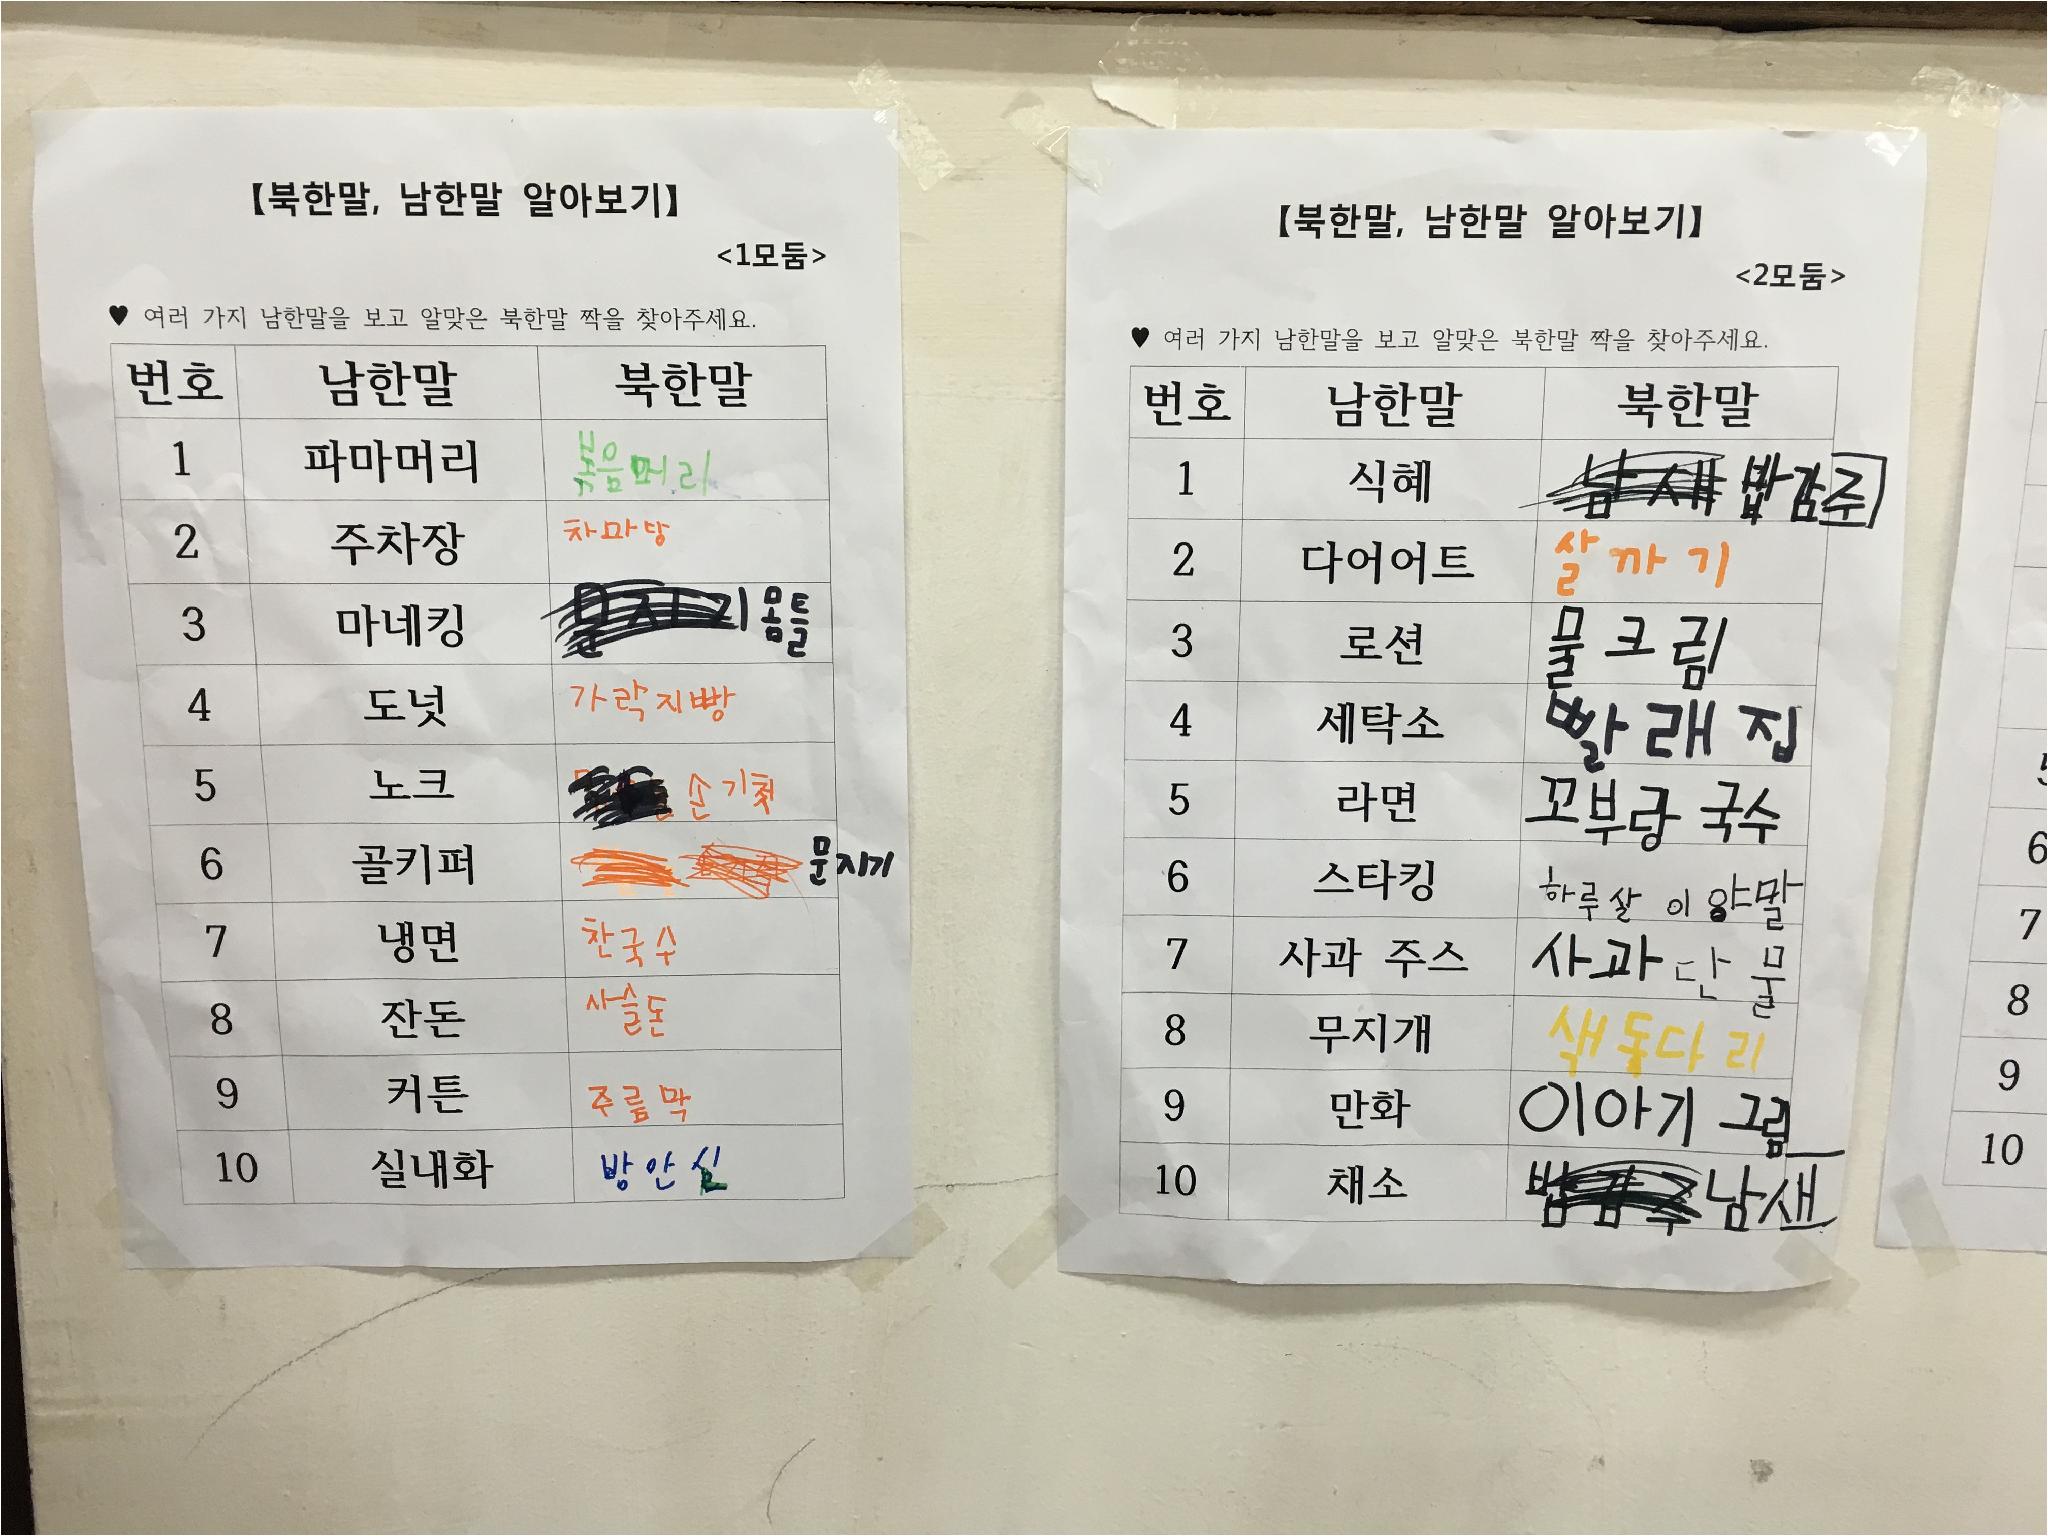 【북한말, 남한말 알아보기】
<1모둠>
♥ 여러 가지 남한말을 보고 알맞은 북한말 짝을 찾아주세요.
번호 남한말 북한말
1 파마머리 볶음머리
2 주차장 차마당
3 마네킹 몸틀
4 도넛 가락지빵
5 노크 손기척
6 골키퍼 문지기
7 냉면 찬국수
8 잔돈 사슬돈
9 커튼 주름막
10 실내화 방안실
【북한말, 남한말 알아보기】
<2모둠>
♥ 여러 가지 남한말을 보고 알맞은 북한말 짝을 찾아주세요.
번호 남한말 북한말
1 식혜 남새 밥감주
2 다어어트 살까기
3 로션 물크림
4 세탁소 빨래집
5 라면 꼬부랑 국수
6 스타킹 하루살이양말
7 사과 주스 사과단물
8 무지개 색동다리
9 만화 이야기 그림
10 채소 밥감주 남새
5
6
7
8
9
10